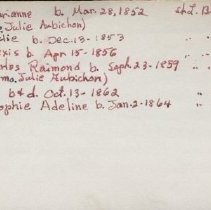 arianne b. Mar. 28, 1852 ch L. B
Julie Aubichon)
lie b. Dec. 13 - 1853 "
exis b. Apr 15 - 1856 " "
Raimond b. Sept. 23 - 1859 " "
mo. Julie Aubichon)
b & d. Oct. 13 - 1862
ophie Adeline b. Jan. 2 - 1864 " "